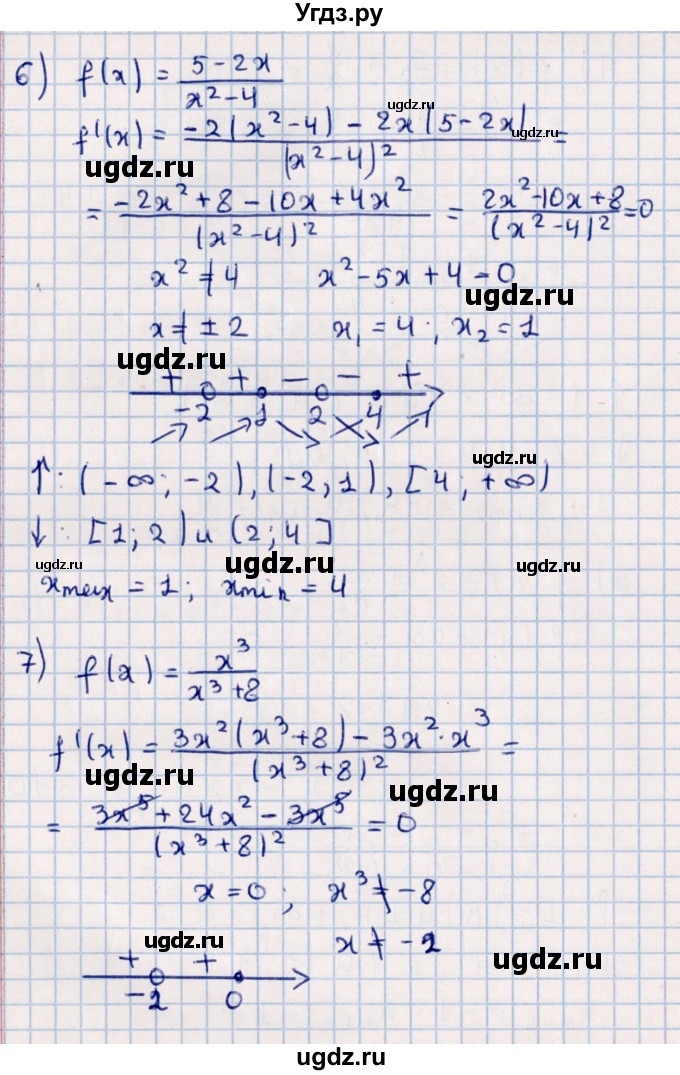 Угдз.ру
6) f(x) = (5-2x)/(x²-4)
ugdz.ru
f'(x) = (-2(x²-4) - 2x(5-2x))/(x²-4)² =
ugdz.ru
ugdz.ru
= (-2x²+8-10x+4x²)/(x²-4)² = (2x²-10x+8)/(x²-4)² = 0
x² ≠ 4 x²-5x+4-0
ugdz.ru
x ≠ ±2 x₁ = 4; x₂ = 1
ugdz.ru
+ + - - +
-2 1 2 4
ugdz.ru
↑: (-∞; -2), (-2; 1), [4; +∞)
↓: [1; 2) и (2; 4]
ugdz.ru ugdz.ru ugdz.ru
xmax = 1; xmin = 4
7) f(x) = x³/(x³+8)
f'(x) = (3x²(x³+8) - 3x²·x³)/(x³+8)² =
ugdz.ru ugdz.ru
= (3x⁵+24x²-3x⁵)/(x³+8)² = 0
x = 0; x³ ≠ -8
ugdz.ru
x ≠ -2
+ +
-2 0
ugdz.ru
ugdz.ru